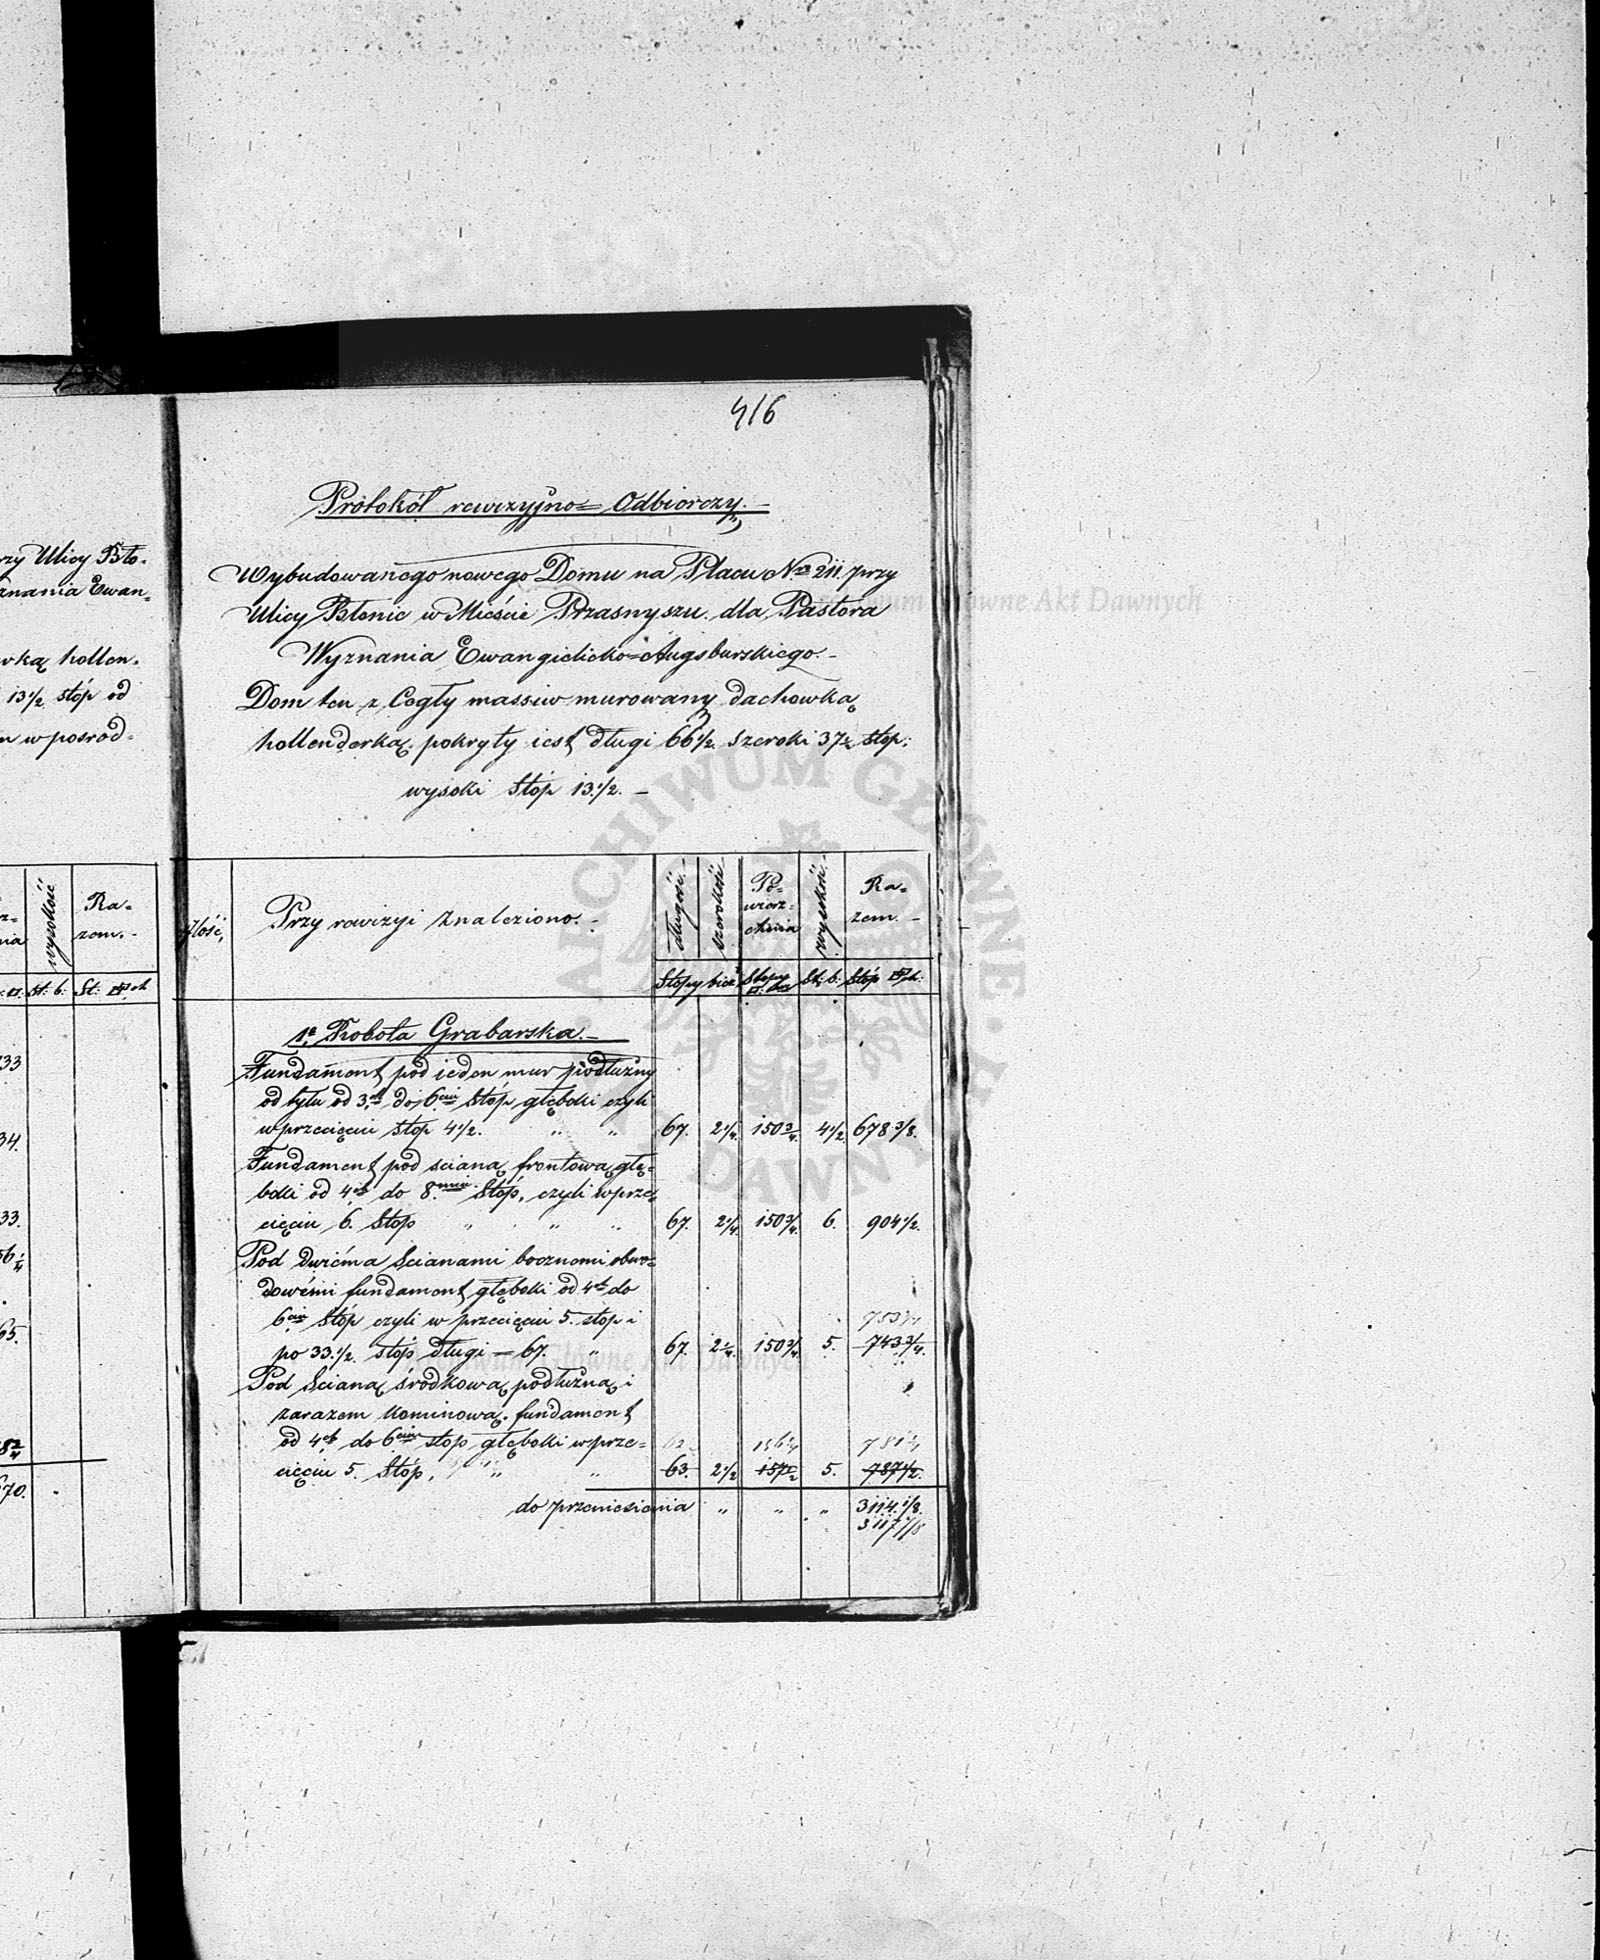 416
Protokół rewizyjno= Odbiorczy.
Wybudowanego nowego Domu na Placu Nro 211. przy
Ulicy Błonie w Mieście Przasnyszu dla Pastora
Wyznania Ewangielicko=Augsburskiego.
Dom ten z Cegły massiw murowany dachowką
hollenderką pokryty iest długi 66 1/2 szeroki 37 1/2 stóp;
wysoki Stóp 13 1/2. —
Ilość,
Przy rewizyi znaleziono. —
długość.
szerokość
Po=
wierz=
chnia
wysokość.
Ra=
zem. —
Stopy bież
Stopy
St: b.
Stóp
1e. Robota Grabarska. —
Fundament pod ieden mur podłużny
od tyłu od 3ch do 6ciu Stóp głęboki czyli
w przecięciu stóp 4 1/2. " " 67. 2 1/4. 150 3/4. 4 1/2. 678 3/8.
Fundament pod scianą frontową głę=
boki od 4ch do 8miu Stóp, czyli w prze=
cięciu 6. Stóp " " " 67. 2 1/4. 150 3/4. 6. 904 1/2.
Pod dwiema Scianami bocznemi obwo=
dowemi fundament głęboki od 4ch do
6ciu Stóp czyli w przecięciu 5. stóp i 753 3/4
po 33 1/2. stóp długi — 67. " 67. 2 1/4. 150 3/4. 5. 743 3/4.
Pod Scianą środkową podłużną i
zarazem kominową fundament
od 4ch do 6ciu stóp głęboki w prze= 62 156 1/4 781 1/4
cięciu 5. Stóp, " " 63. 2 1/2 157 1/2 5. 787 1/2.
do przeniesienia " " " 3114 1/8.
3117 7/8
rzy Ulicy Bło=
znania Ewan=
wką hollen=
13 1/2 stóp od
m w posrod=
wysokość
Ra=
zem. —
St: b.
St:
33
34.
33.
56 1/4
65.
670.
ARCHIWUM GŁÓWNE AKT DAWNYCH
Archiwum Główne Akt Dawnych
Archiwum Główne Akt Dawnych